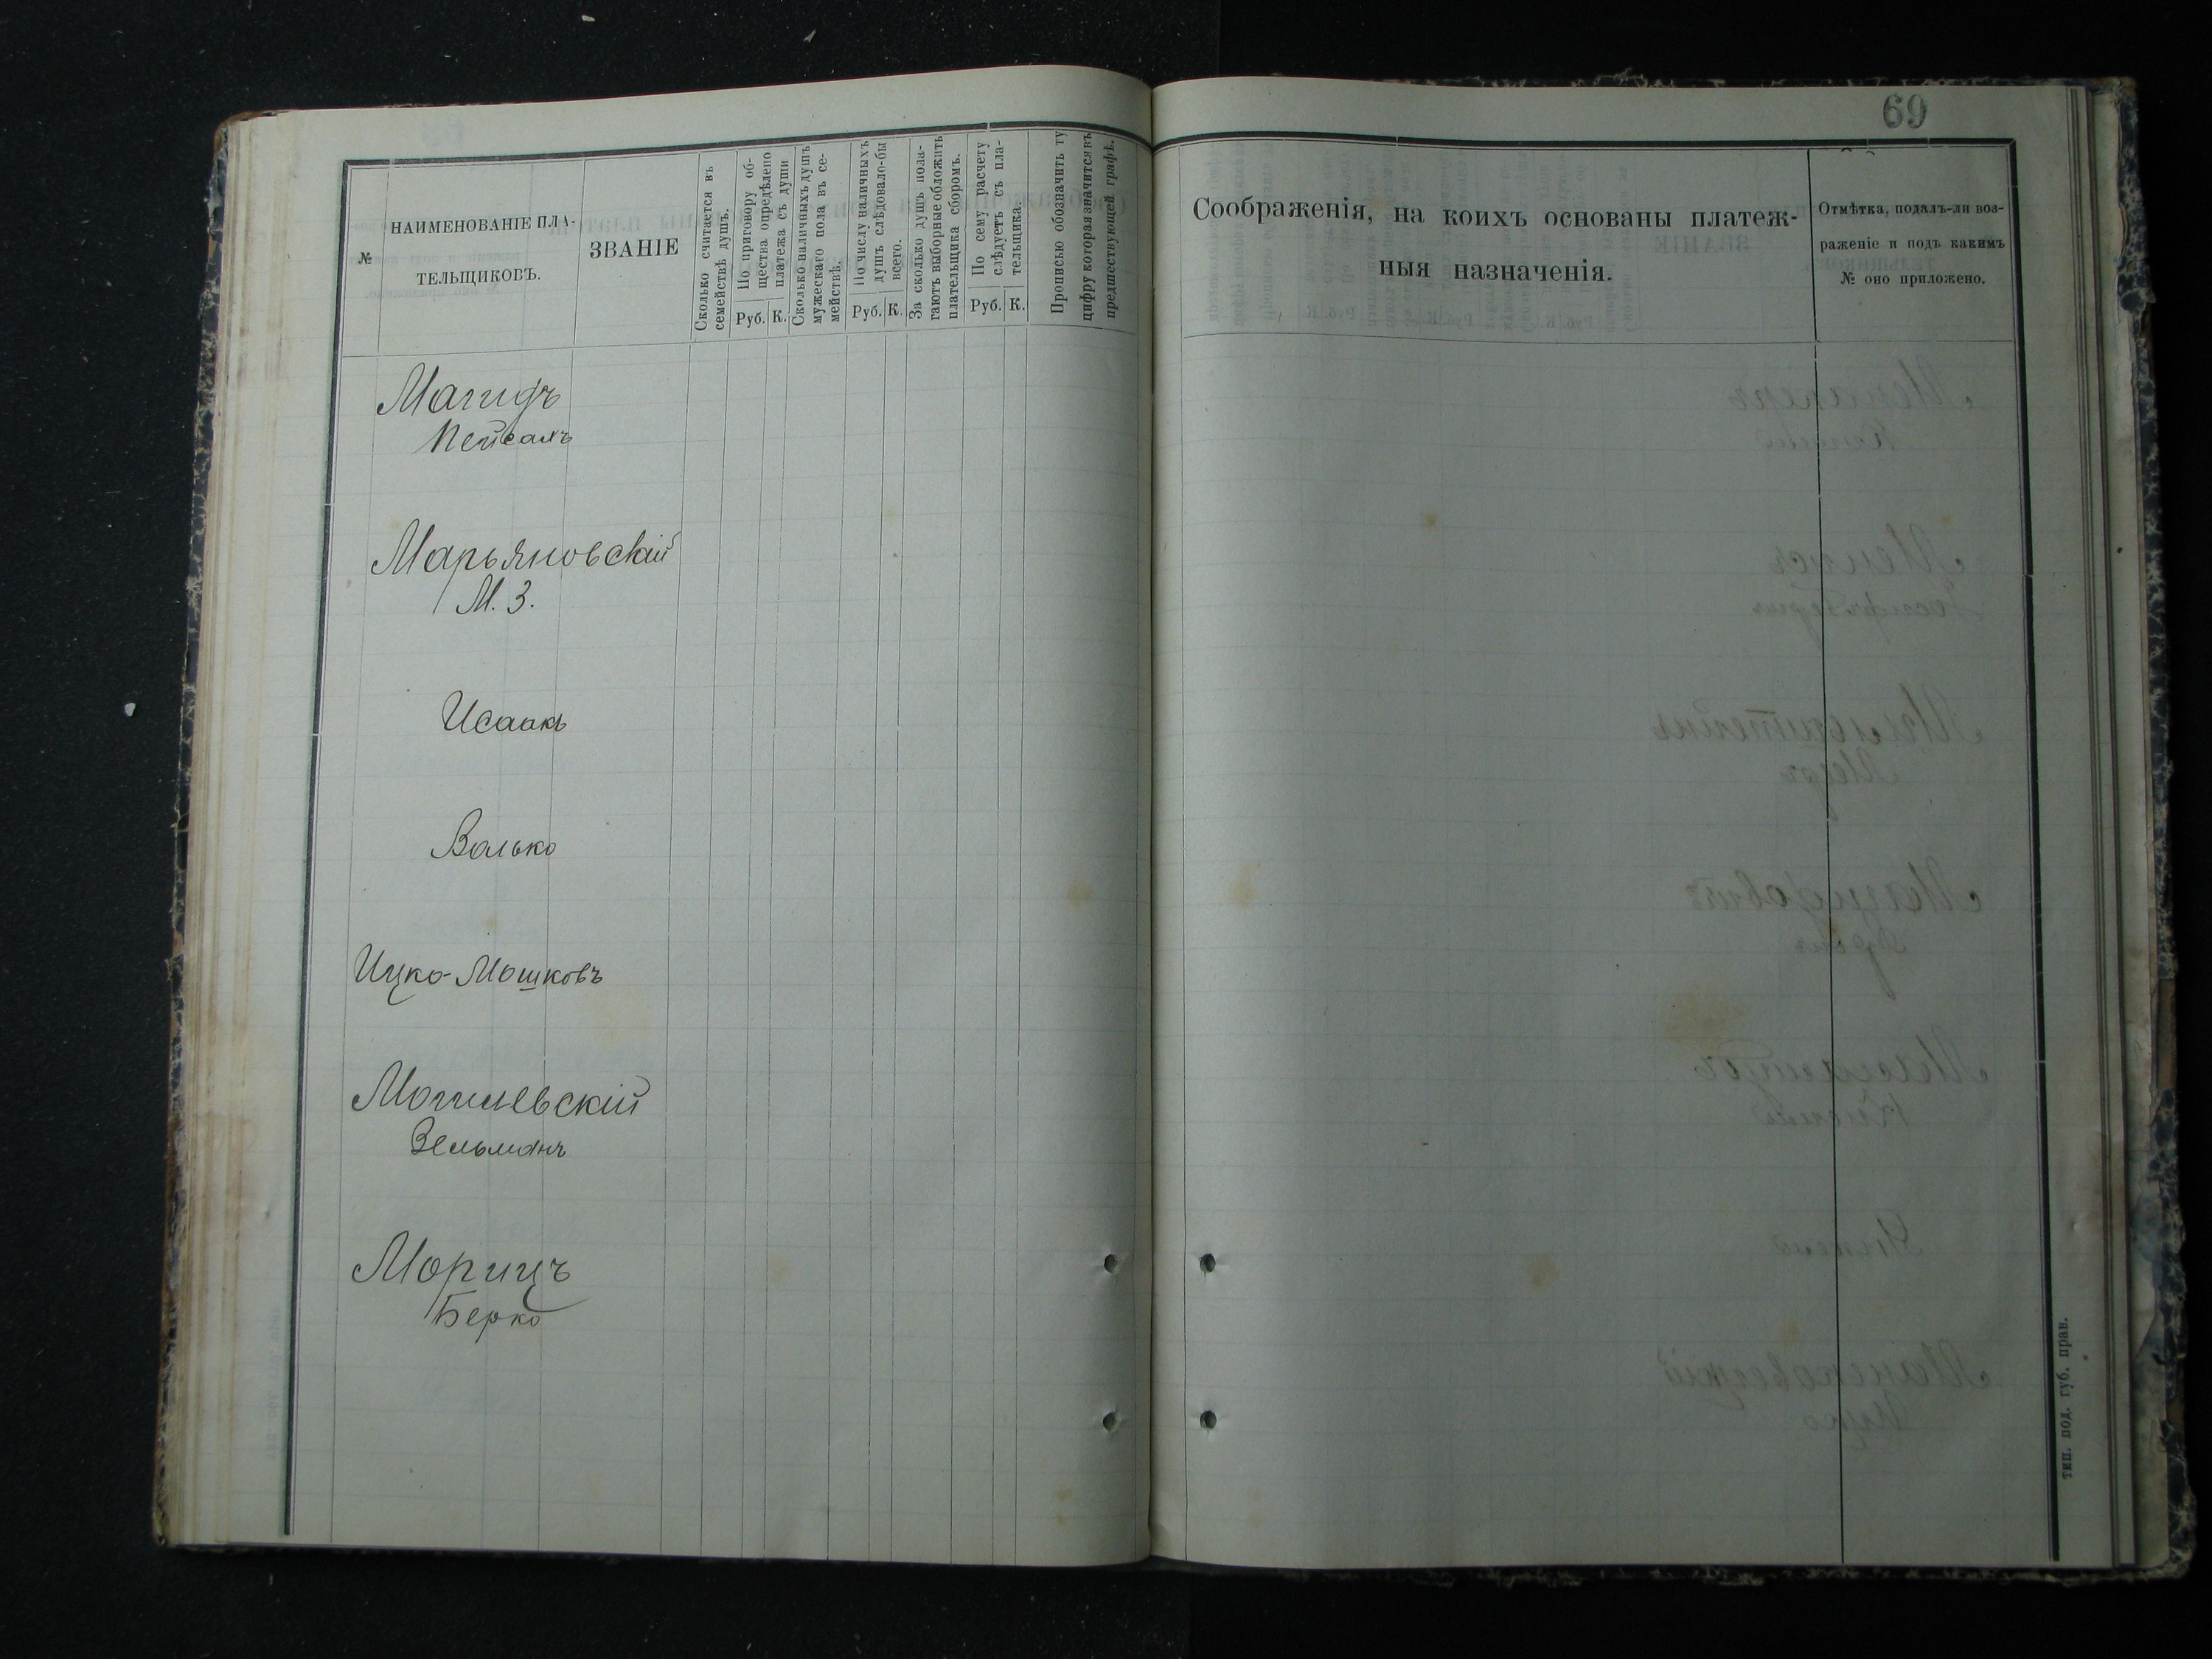 69
№
НАИМЕНОВАНІЕ ПЛА-
ТЕЛЬЩИКОВЪ.
ЗВАНІЕ
Сколько считается въ
семействѣ душъ.
По приговору об-
щества опредѣлено
платежа съ души
Руб. К.
Сколько наличныхъ душъ
мужескаго пола въ се-
мействѣ.
По числу наличныхъ
душъ слѣдовало-бы
всего.
Руб. К.
За сколько душъ пола-
гаютъ выборные обложить
плательщика сборомъ.
По сему расчету
слѣдуетъ съ пла-
тельщика.
Руб. К.
Прописью обозначить ту
цифру которая значится въ
предшествующей графѣ.
Соображенія, на коихъ основаны платеж-
ныя назначенія.
Отмѣтка, подалъ-ли воз-
раженіе и подъ какимъ
№ оно приложено.
Магидъ
Пейсахъ
Марьяновскій
М. З.
Исаакъ
Волько
Ицко-Мошковъ
Могилевскій
Зельманъ
Морицъ
Берко
тип. под. губ. прав.